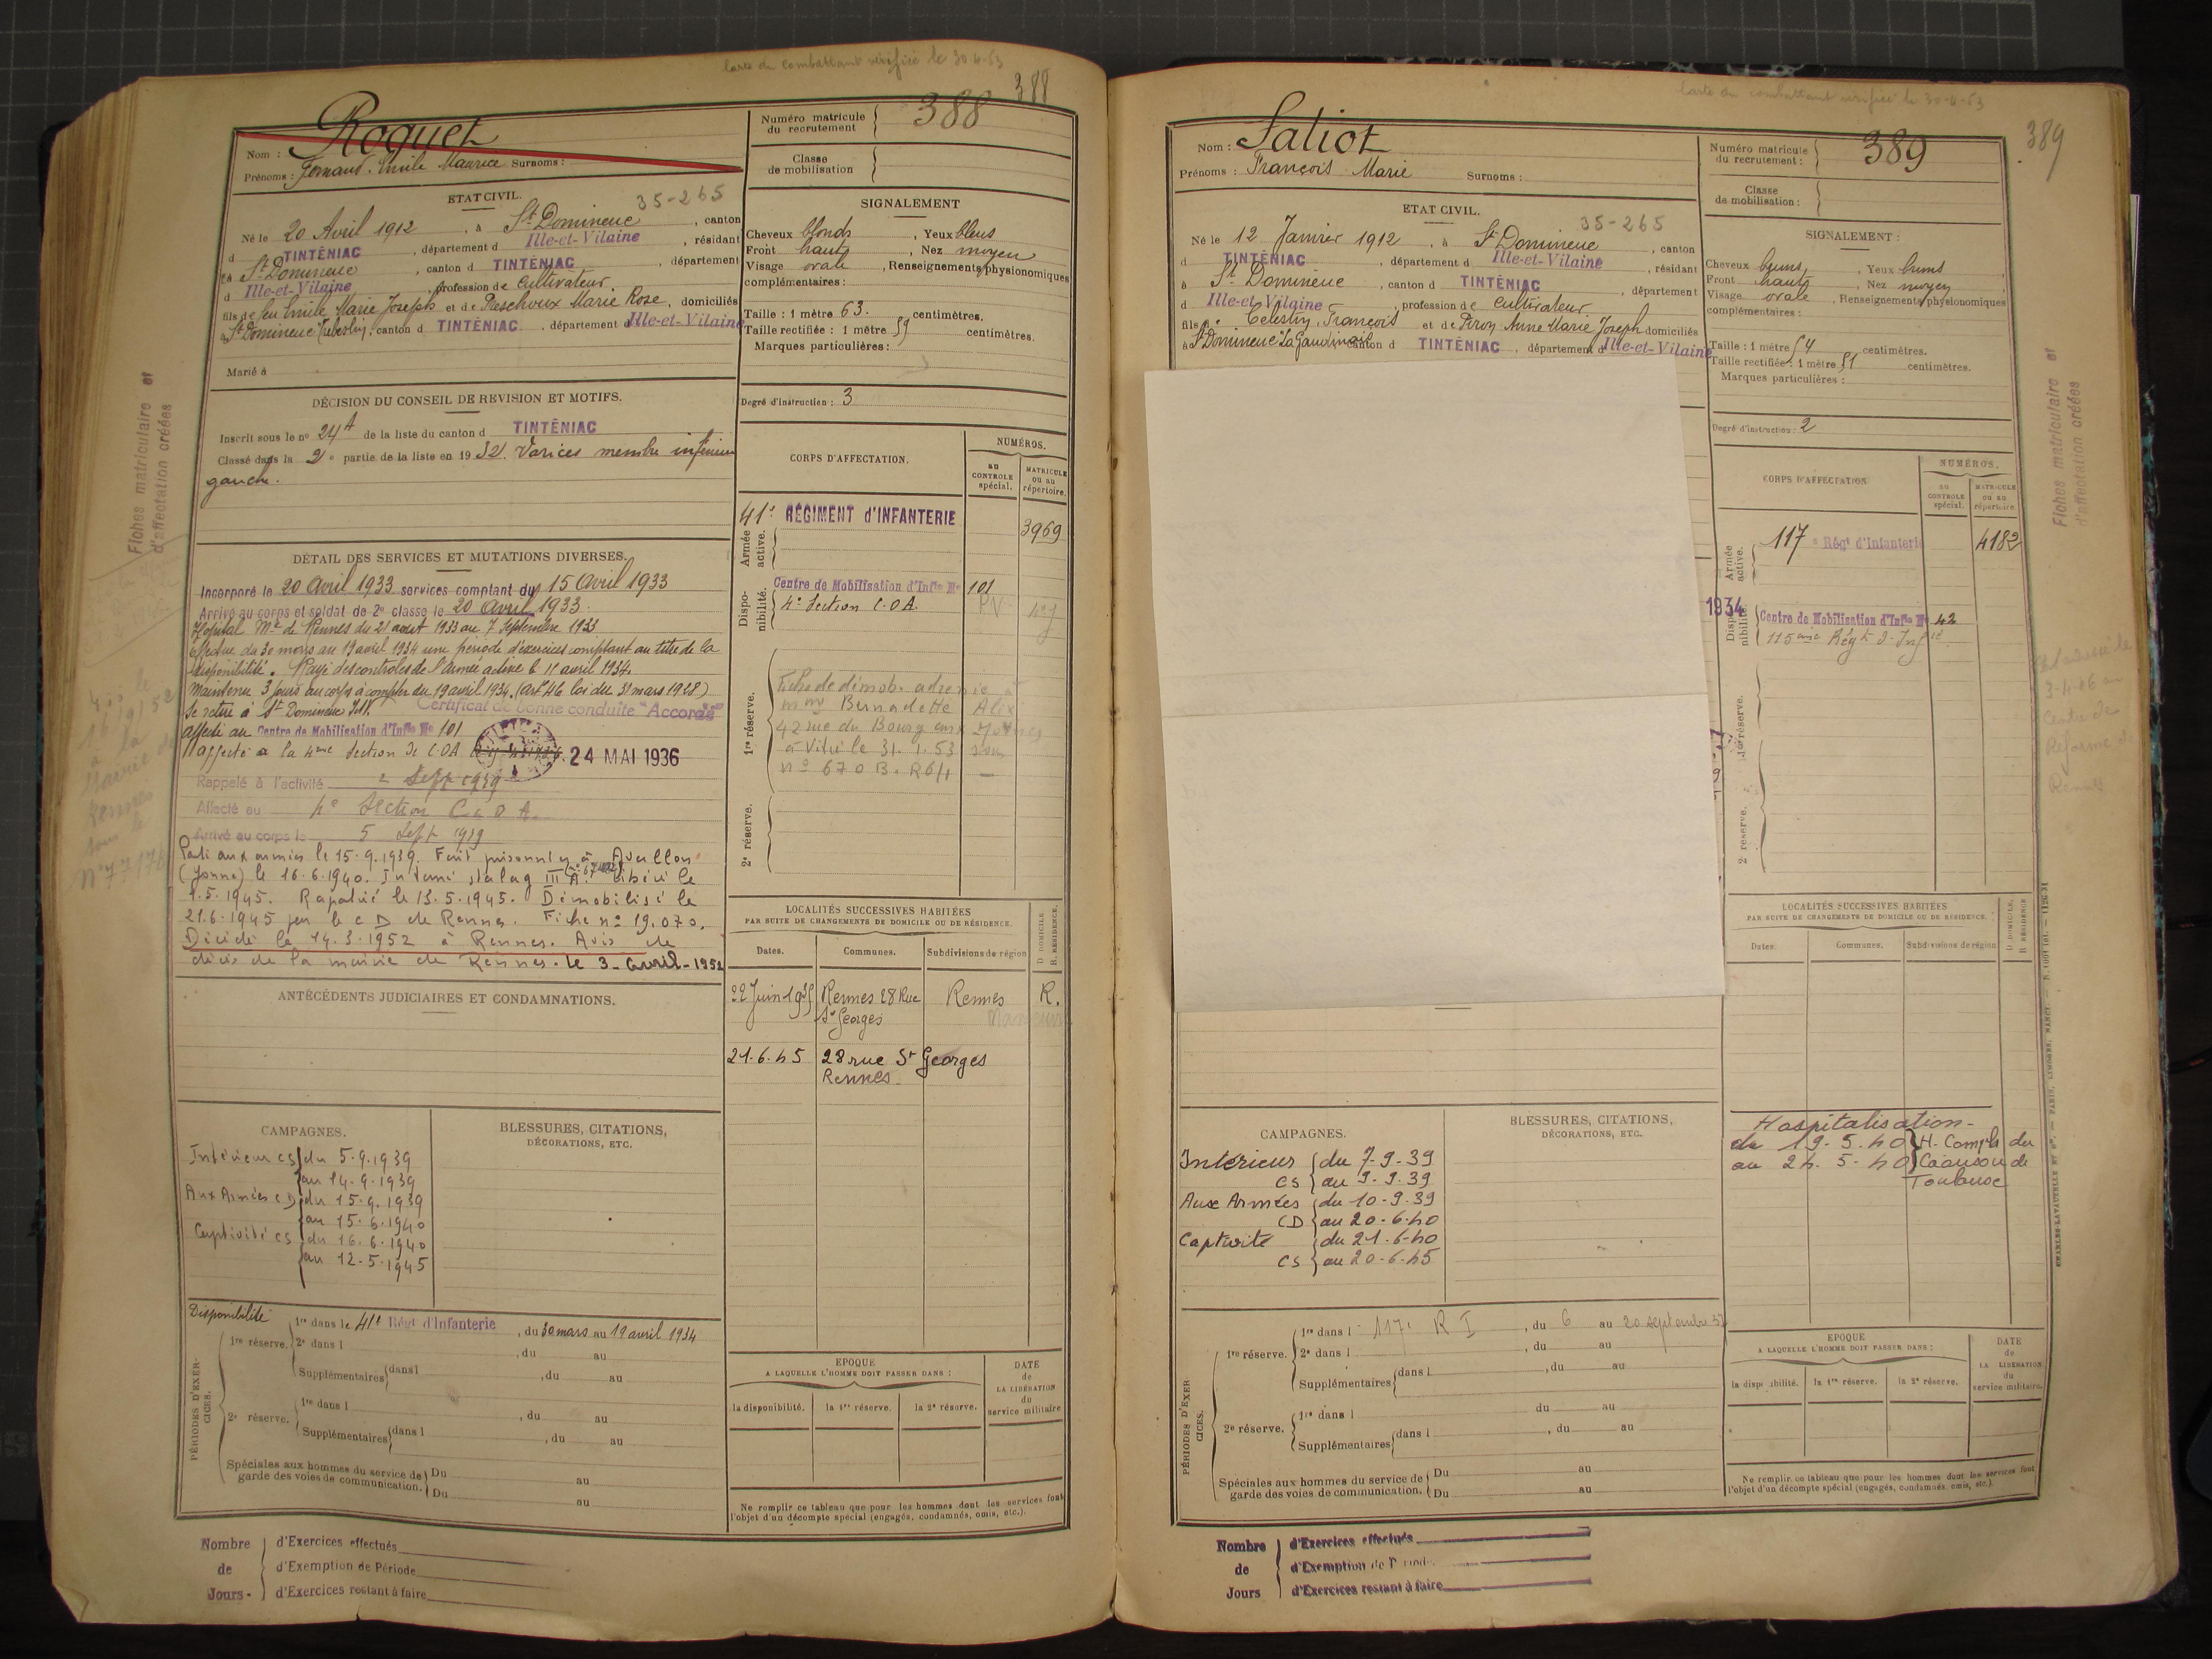 Carte du combattant vérifiée le 30-4-53
388
Roquet
Nom :
Prénoms : Fernand. Emile Maurice Surnoms :
Numéro matricule du recrutement 388
Classe de mobilisation
ETAT CIVIL. 35-265
Né le 20 Avril 1912, à St Domineuc, canton
d TINTÉNIAC, département d Ille-et-Vilaine, résidant
à St Domineuc, canton d TINTÉNIAC, département
d Ille-et-Vilaine, profession de cultivateur.
fils de feu Emile Marie Joseph et de Marie Rose, domiciliés
à St Domineuc, canton d TINTÉNIAC, département d Ille-et-Vilaine
Marié à
SIGNALEMENT
Cheveux blonds, Yeux bleus
Front haut, Nez moyen
Visage ovale, Renseignements physionomiques
complémentaires :
Taille : 1 mètre 63. centimètres.
Taille rectifiée : 1 mètre 59 centimètres.
Marques particulières :
Degré d'instruction : 3
DÉCISION DU CONSEIL DE REVISION ET MOTIFS.
Inscrit sous le no 24A de la liste du canton d TINTÉNIAC
Classé dans la 2e partie de la liste en 1932. Varices membre inférieur
gauche.
DÉTAIL DES SERVICES ET MUTATIONS DIVERSES.
Incorporé le 20 Avril 1933 services comptant du 15 Avril 1933
Arrivé au corps et soldat de 2e classe le 20 Avril 1933.
Hopital Mre de Rennes du 21 aout 1933 au 7 Septembre 1933
Effectue du 30 mars au 19 avril 1934 une période d'exercices comptant au titre de la
disponibilité. Rayé des controles de l'Armée active le 11 avril 1934.
Maintenu 3 jours au corps à compter du 19 avril 1934. (art 46 loi du 31 mars 1928)
Se retire à St Domineuc I&V. Certificat de bonne conduite "Accordé"
affecté au Centre de Mobilisation d'Infie No 101
Affecté à la 4eme Section de C.O.A. 24 MAI 1936
Rappelé à l'activité 2 Sept 1939
Affecté au 4e Section C.O.A.
Arrivé au corps le 5 Sept 1939
Parti aux armées le 15.9.1939. Fait prisonnier à Avallon
(Yonne) le 16.6.1940. Interné stalag III A. Libéré le
1.5.1945. Rapatrié le 13.5.1945. Démobilisé le
21.6.1945 par le C D de Rennes. Fiche no 19.070.
Décédé le 14.3.1952 à Rennes. Avis de
décès de la mairie de Rennes. le 3 - avril - 1952
CORPS D'AFFECTATION.
NUMÉROS.
AU CONTROLE spécial.
MATRICULE ou au répertoire.
Armée active.
41e RÉGIMENT d'INFANTERIE 3969
Disponibilité.
Centre de Mobilisation d'Infie No 101
4e Section C.O.A.
1re réserve.
Fiche de démob. adressée à
Mme Bernadette Alix
42 rue du Bourg aux
à Vitré le 31.1.53 sous
no 670 B. R64
2e réserve.
LOCALITÉS SUCCESSIVES HABITÉES
PAR SUITE DE CHANGEMENTS DE DOMICILE OU DE RÉSIDENCE.
Dates. Communes. Subdivisions de région D. DOMICILE R. RÉSIDENCE.
22 Juin 1935 Rennes 28 Rue St Georges Rennes R.
21.6.45 28 rue St Georges
Rennes
ANTÉCÉDENTS JUDICIAIRES ET CONDAMNATIONS.
CAMPAGNES.
Intérieur CS du 5.9.1939
au 14.9.1939
Aux Armées CD du 15.9.1939
au 15.6.1940
Captivité CS du 16.6.1940
au 12.5.1945
BLESSURES, CITATIONS,
DÉCORATIONS, ETC.
PÉRIODES D'EXERCICES.
Disponibilité 1re dans le 41e Régt d'Infanterie, du 30 mars au 19 avril 1934
1re réserve. 2e dans l , du au
Supplémentaires dans l , du au
2e réserve. 1re dans l , du au
Supplémentaires dans l , du au
Spéciales aux hommes du service de Du au
garde des voies de communication. Du au
EPOQUE
A LAQUELLE L'HOMME DOIT PASSER DANS :
la disponibilité. la 1re réserve. la 2e réserve.
DATE de LA LIBÉRATION du service militaire
Ne remplir ce tableau que pour les hommes dont les services font
l'objet d'un décompte spécial (engagés, condamnés, omis, etc.).
Nombre de Jours -
d'Exercices effectués
d'Exemption de Période
d'Exercices restant à faire
Fiches matriculaire et
d'affectation créées
Mairie de
Rennes
sous le
Carte du combattant vérifiée le 30-4-53
389
Nom : Saliot
Prénoms : François Marie Surnoms :
Numéro matricule du recrutement : 389
Classe de mobilisation :
ETAT CIVIL. 35-265
Né le 12 Janvier 1912, à St Domineuc, canton
d TINTÉNIAC, département d Ille-et-Vilaine, résidant
à St Domineuc, canton d TINTÉNIAC, département
d Ille-et-Vilaine, profession de cultivateur
fils de Célestin, François et de Piron Anne Marie Joseph domiciliés
à St Domineuc, canton d TINTÉNIAC, département d Ille-et-Vilaine
SIGNALEMENT :
Cheveux bruns, Yeux bruns
Front haut, Nez moyen
Visage ovale, Renseignements physionomiques
complémentaires :
Taille : 1 mètre 54 centimètres.
Taille rectifiée : 1 mètre 51 centimètres.
Marques particulières :
Degré d'instruction : 2
CORPS D'AFFECTATION
NUMÉROS.
AU CONTROLE spécial.
MATRICULE ou au répertoire.
Armée active.
117e Régt d'Infanterie 4182
1934
Disponibilité.
Centre de Mobilisation d'Infie No 42
115eme Régt d'Infie
1re réserve.
2e réserve.
LOCALITÉS SUCCESSIVES HABITÉES
PAR SUITE DE CHANGEMENTS DE DOMICILE OU DE RÉSIDENCE.
Dates. Communes. Subdivisions de région D. DOMICILE. R. RÉSIDENCE
Hospitalisation -
du 19.5.40 H. Compl. du
au 24.5.40 Caousou de
Toulouse
CAMPAGNES.
Intérieur du 7.9.39
CS au 9.9.39
Aux Armées du 10.9.39
CD au 20.6.40
Captivité du 21.6.40
CS au 20.6.45
BLESSURES, CITATIONS,
DÉCORATIONS, ETC.
PÉRIODES D'EXERCICES.
1re réserve. 1re dans l 117e R I, du 6 au 20 septembre 37
2e dans l , du au
Supplémentaires dans l , du au
2e réserve. 1re dans l du au
Supplémentaires dans l , du au
Spéciales aux hommes du service de Du au
garde des voies de communication. Du au
EPOQUE
A LAQUELLE L'HOMME DOIT PASSER DANS :
la disponibilité. la 1re réserve. la 2e réserve.
DATE de LA LIBÉRATION du service militaire.
Ne remplir ce tableau que pour les hommes dont les services font
l'objet d'un décompte spécial (engagés, condamnés, omis, etc.).
Nombre de Jours
d'Exercices effectués
d'Exemption de Période
d'Exercices restant à faire
Fiches matriculaire et
d'affectation créées
3-4-46 au
Centre de
Réforme de
Rennes